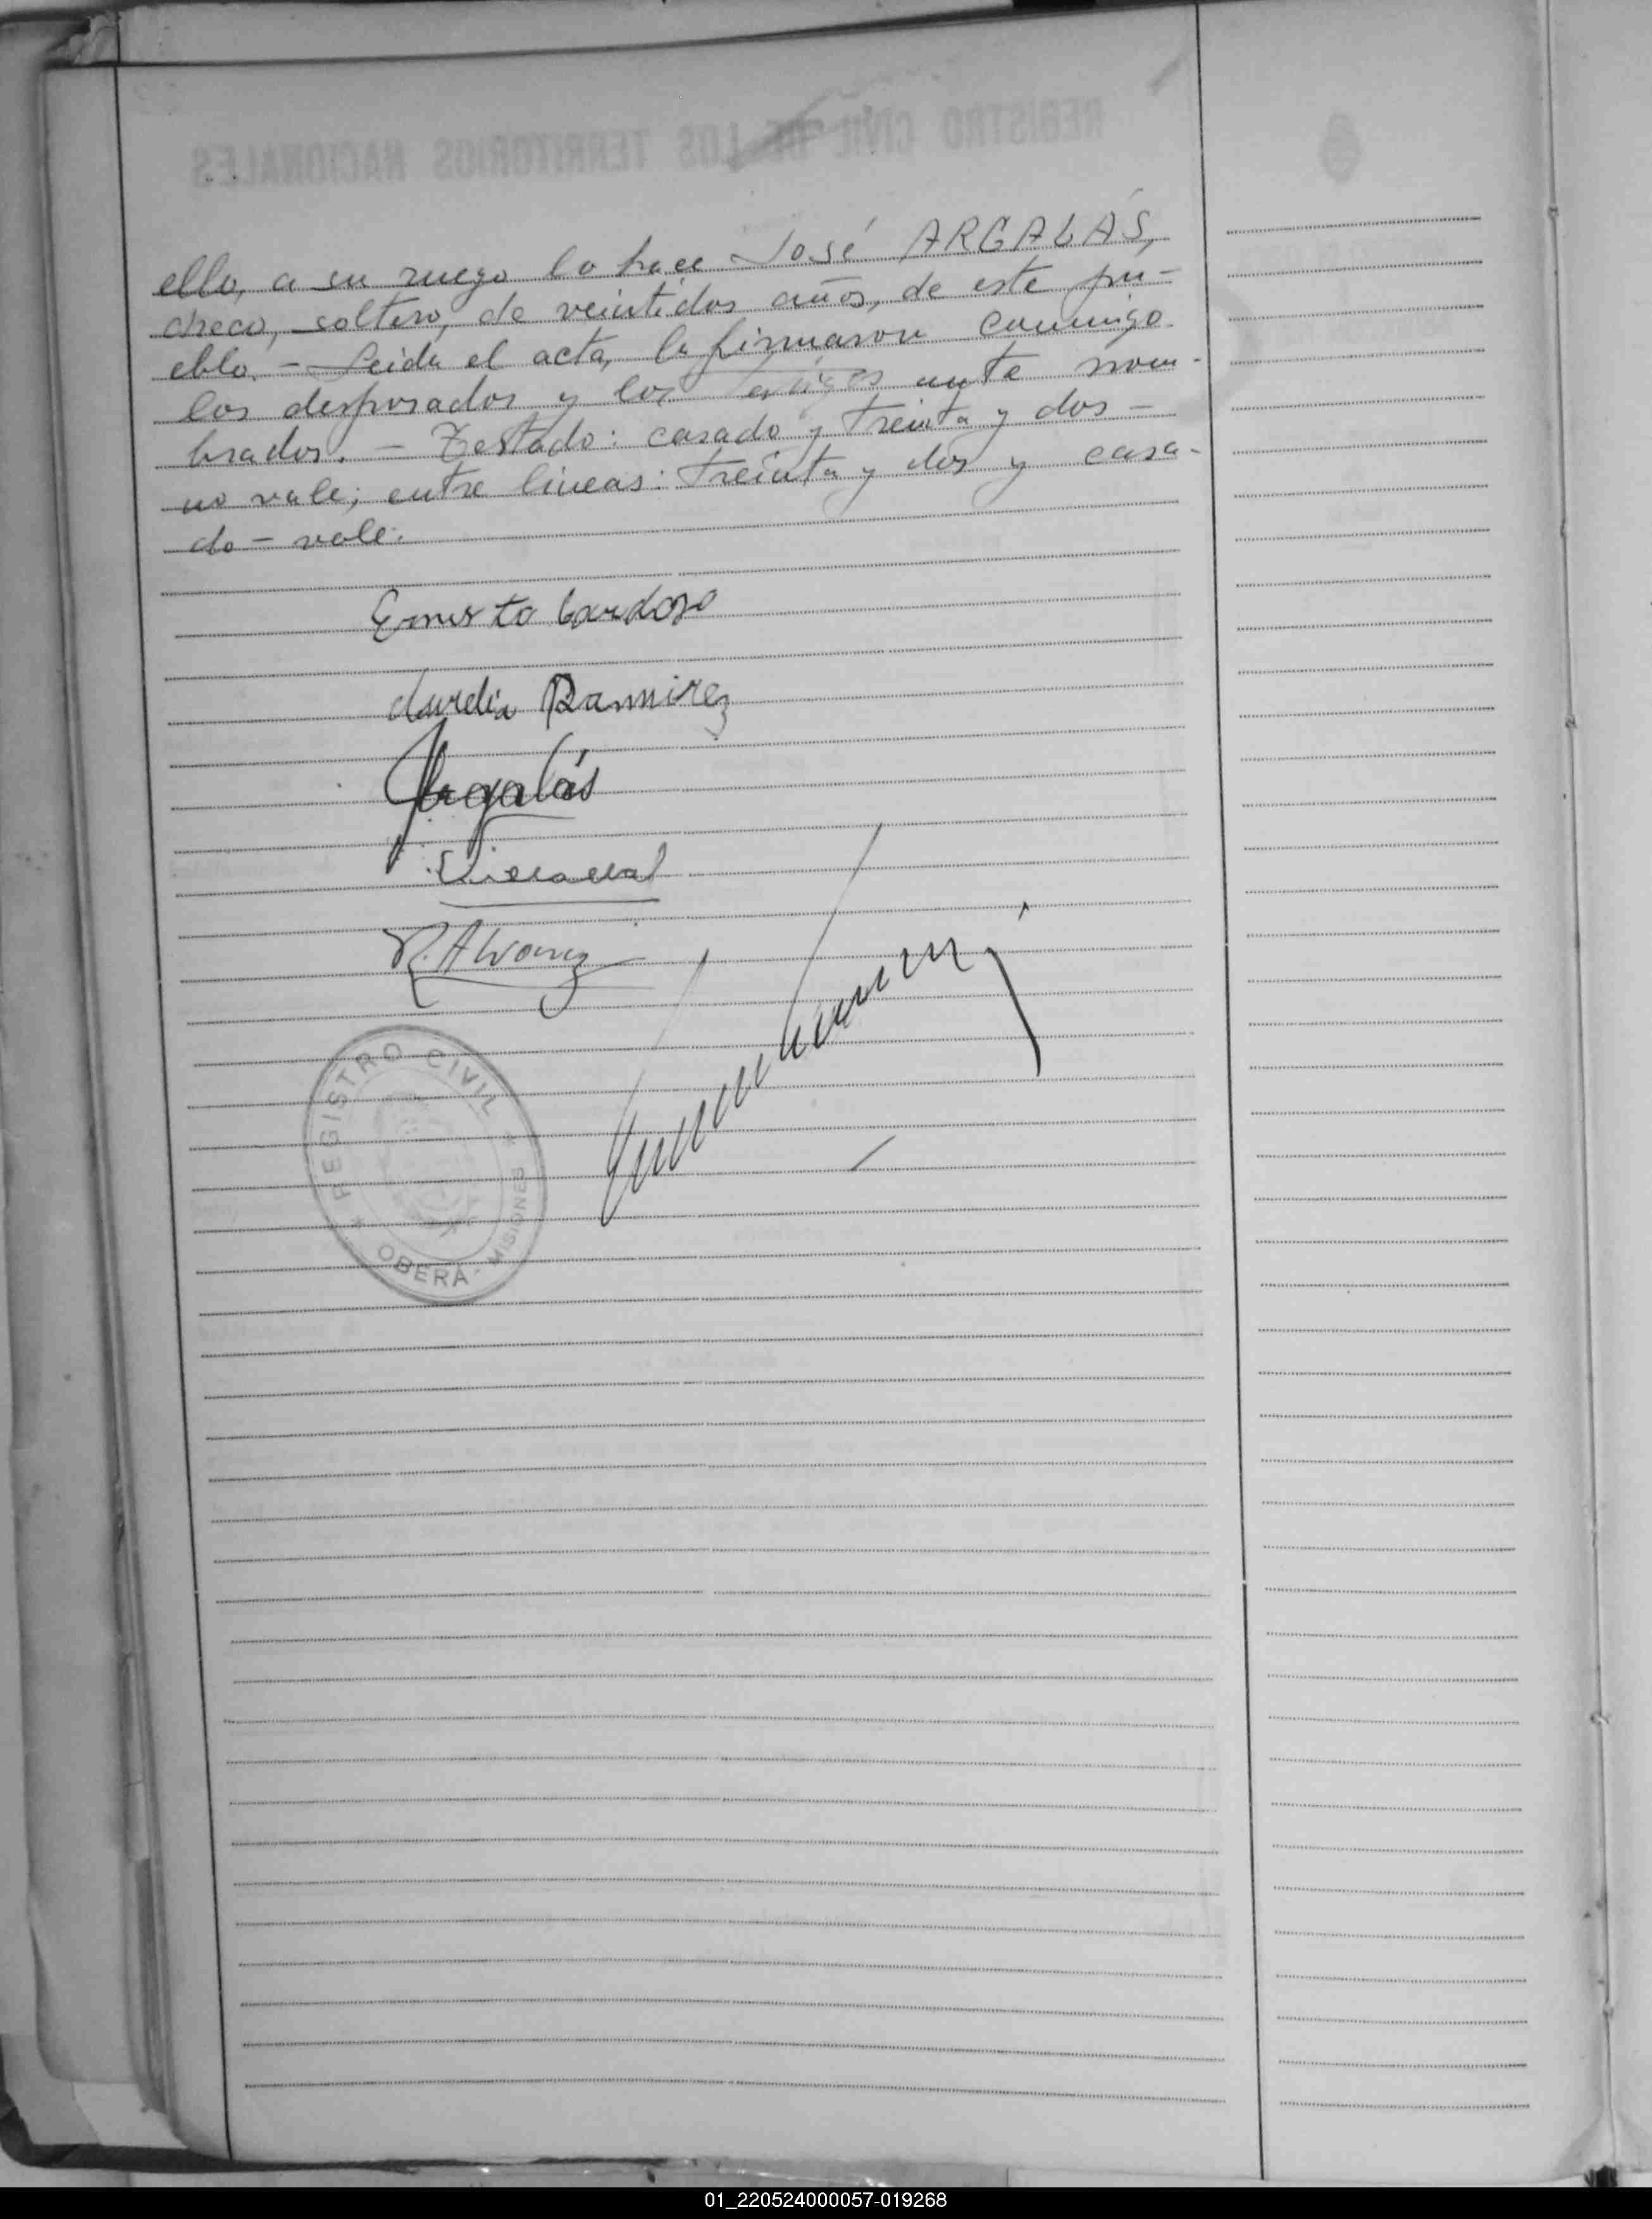 ello, a su ruego lo hace José ARGALÁS,
checo, soltero, de veintidos años, de este pu-
eblo. - Leida el acta, la firmaron conmigo
los desposados y los testigos ante nom-
brados. - Testado: casado y treinta y dos -
no vale; entre lineas: treinta y dos y casa-
do - vale.
Ernesto Cardozo
Ramirez
Argalás
R. Alvarez
REGISTRO CIVIL
OBERÁ - MISIONES
01_220524000057-019268